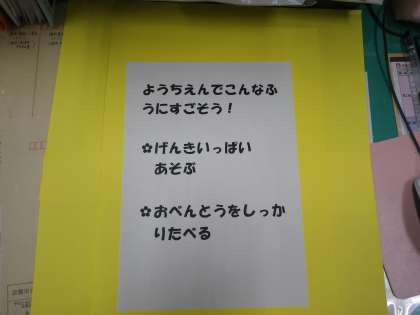 ようちえんでこんなふ
うにすごそう！
✿げんきいっぱい
あそぶ
✿おべんとうをしっか
りたべる